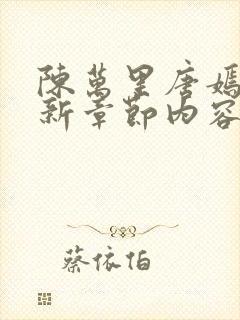 陳萬里唐嫣
新章節內容
蔡依怕